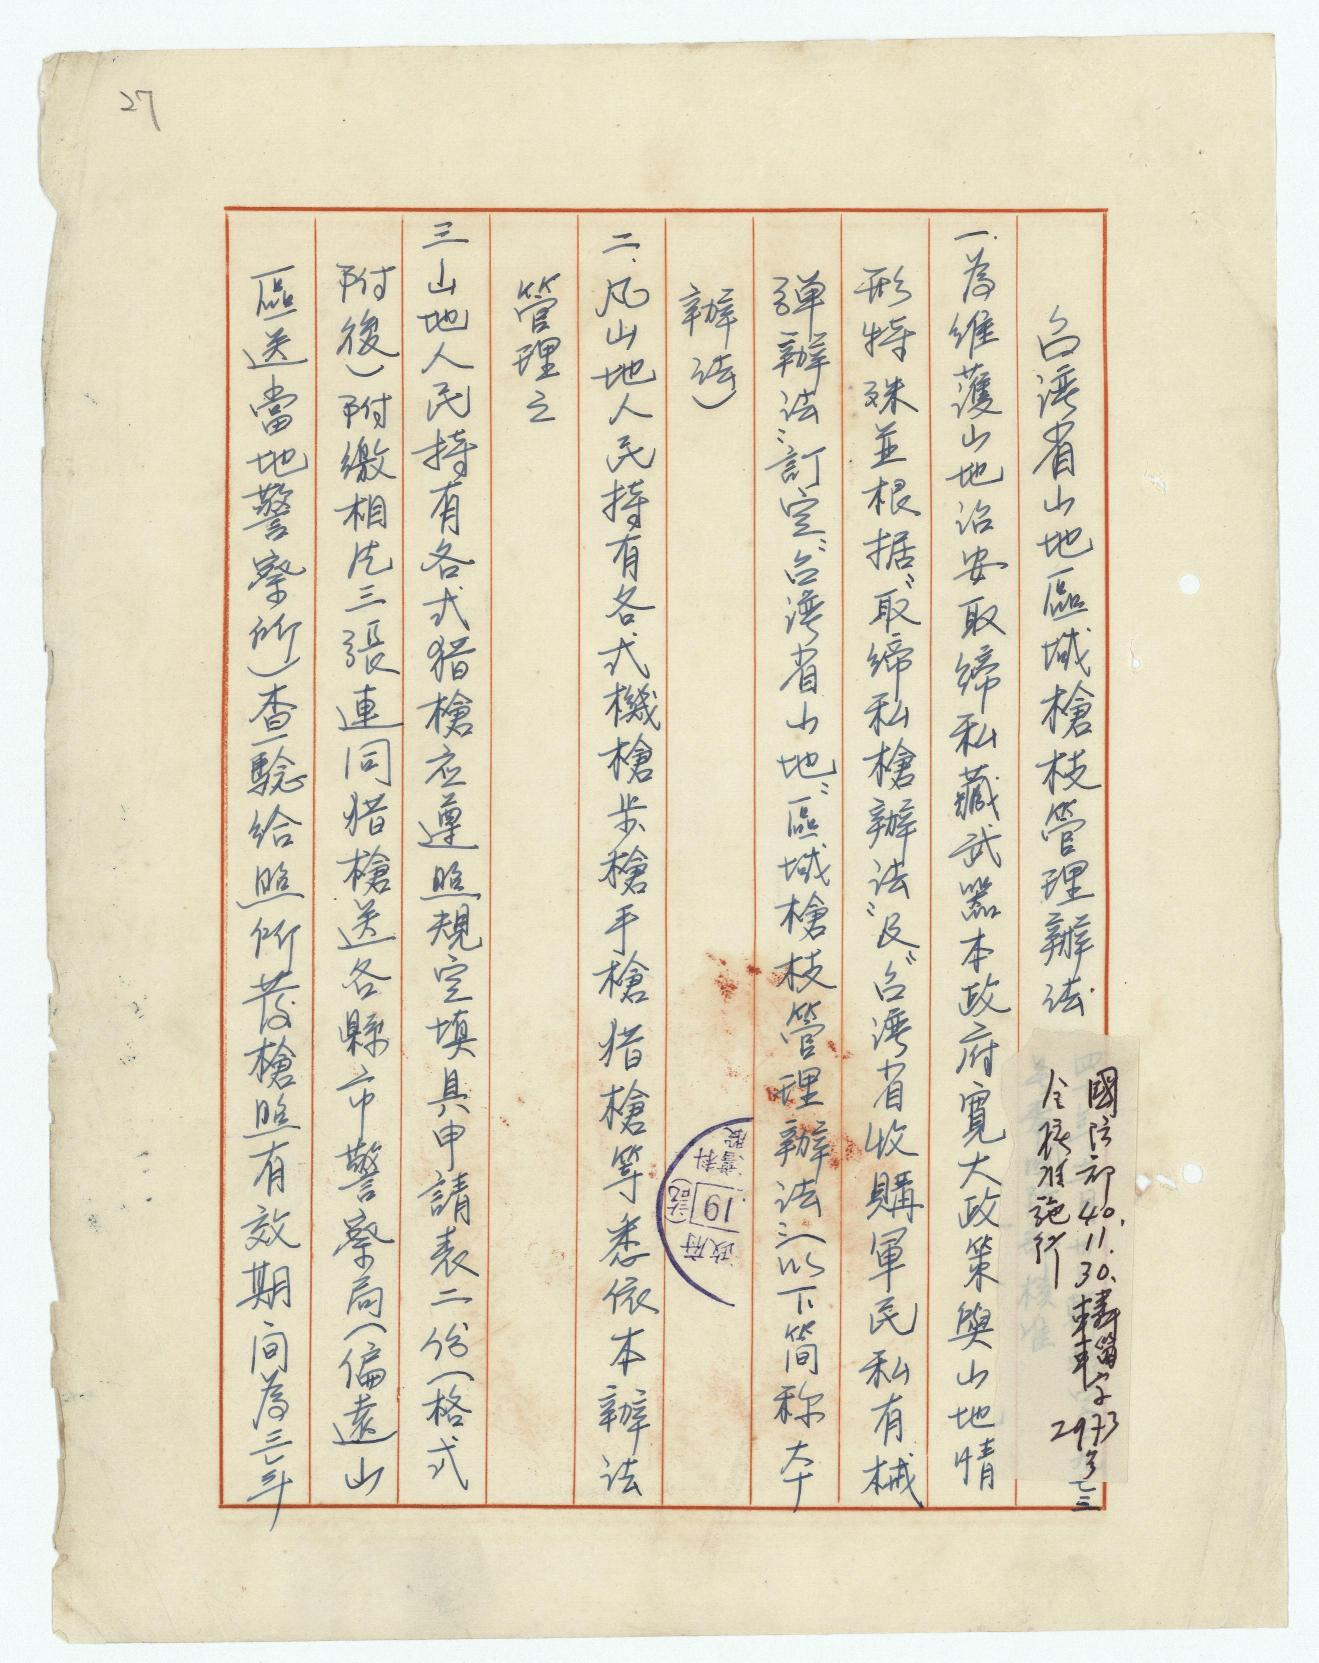 27
台湾省山地區域槍枝管理辦法
國防部40.11.30.
令核准施行
2973
一.為維護山地治安取締私藏武器本政府寬大政策與山地情
形特殊並根据〝取締私槍辦法〞及〝台湾省收購軍民私有械
弹辦法〞訂定〝台湾省山地〞區域槍枝管理辦法〞(以下简称本
辦法)
二.凡山地人民持有各式機槍步槍手槍猎槍等悉依本辦法
管理之
三山地人民持有各式猎槍应遵照規定填具申請表二份(格式
附後)附缴相片三張連同猎槍送各縣市警察局(偏遠山
區送當地警察所)查驗给照所发槍照有效期间為三年
政府
19